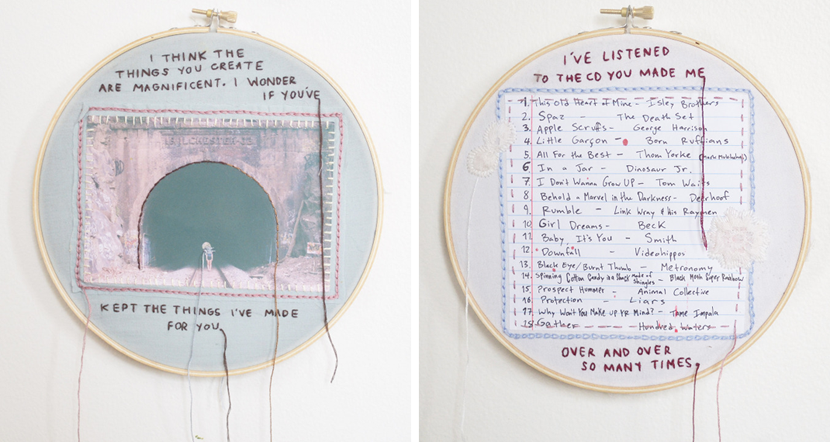 I THINK THE
THINGS YOU CREATE
ARE MAGNIFICENT. I WONDER
IF YOU'VE
KEPT THE THINGS I'VE MADE
FOR YOU
I'VE LISTENED
TO THE CD YOU MADE ME
1. This Old Heart of Mine - Isley Brothers
2. Spaz - The Death Set
3. Apple Scruffs - George Harrison
4. Little Garçon - Born Ruffians
5. All For the Best - Thom Yorke
6. In a Jar - Dinosaur Jr.
7. I Don't Wanna Grow UP - Tom Waits
8. Behold a Marvel in the Darkness - Deerhoof
9. Rumble - Link Wray & His Raymen
10. Girl Dreams - Beck
11. Baby It's You - Smith
12. Downfall - Videohippos
13. Black Eye/Burnt Thumb - Metronomy
14. Spinning Cotton Candy in a Shack made of Shingles - Black Moth Super Rainbow
15. Prospect Hummer - Animal Collective
16. Protection - Liars
17. Why Won't You Make up YR Mind? - Tame Impala
18. Gather - Hundred Waters
OVER AND OVER
SO MANY TIMES.